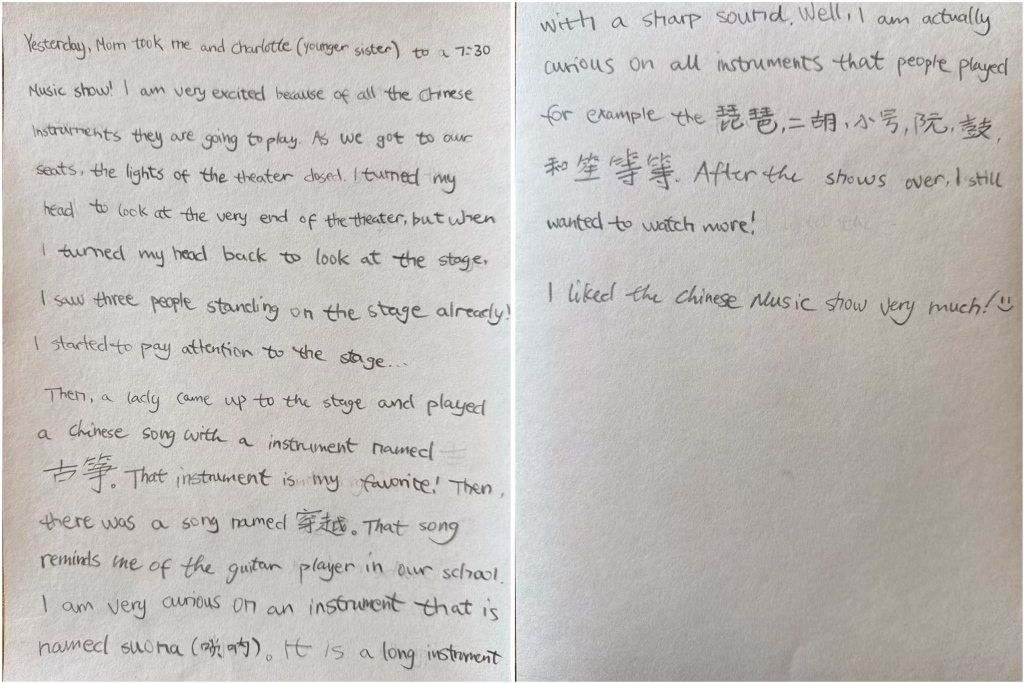 Yesterday, Mom took me and charlotte (younger sister) to a 7:30
Music show! I am very excited because of all the Chinese
Instruments they are going to play. As we got to our
seats, the lights of the theater closed. I turned my
head to look at the very end of the theater, but when
I turned my head back to look at the stage,
I saw three people standing on the stage already!
I started to pay attention to the stage...
Then, a lady came up to the stage and played
a Chinese song with a instrument named
古筝。That instrument is my favorite! Then,
there was a song named 穿越。That song
reminds me of the guitar player in our school.
I am very curious on an instrument that is
named suona (唢呐)。It is a long instrument
with a sharp sound. Well, I am actually
curious on all instruments that people played
for example the 琵琶,二胡,小号,阮,鼓,
和笙等等. After the shows over, I still
wanted to watch more!
I liked the Chinese Music show very much!